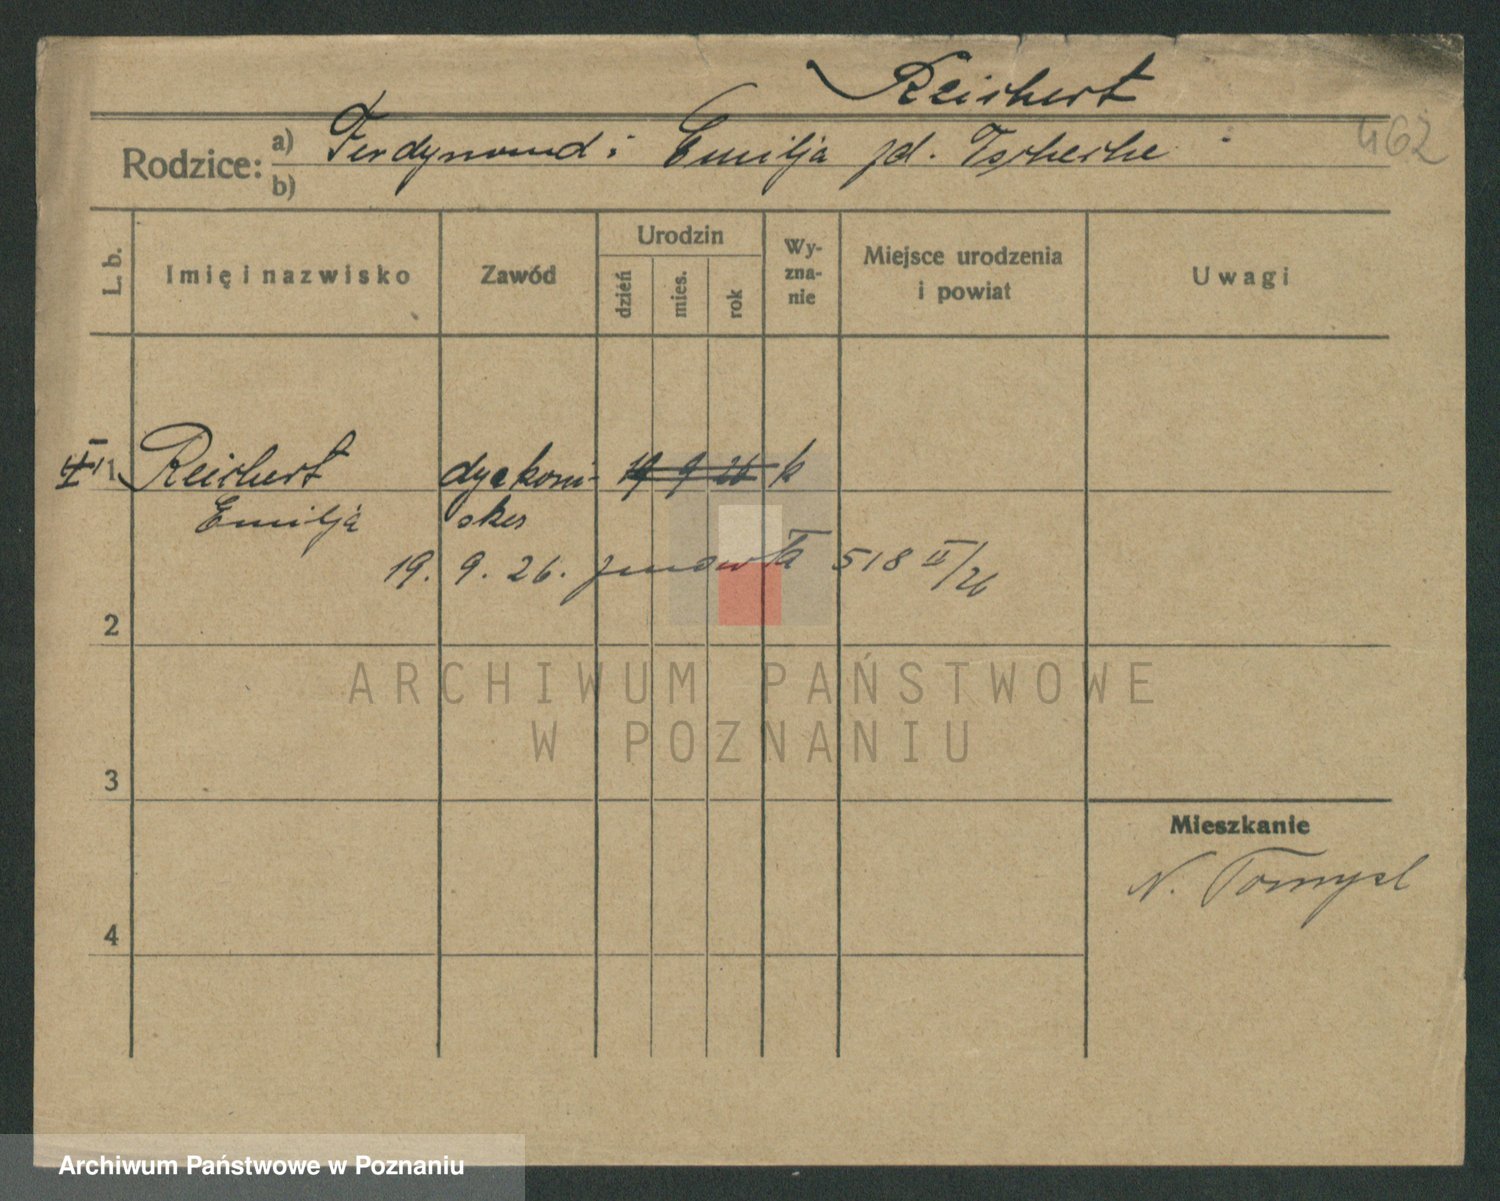 Reichert
462
Rodzice:
a) Ferdynand i Emilja zd. Tscherche
b)
L. b.
Imię i nazwisko
Zawód
Urodzin
dzień
mies.
rok
Wy-
zna-
nie
Miejsce urodzenia
i powiat
Uwagi
1 Reichert dyakoni- 19 9 26
Emilja
19. 9. 26. zmarła 518 II/26
2
3
4
Mieszkanie
N. Tomysl
ARCHIWUM PAŃSTWOWE
W POZNANIU
Archiwum Państwowe w Poznaniu